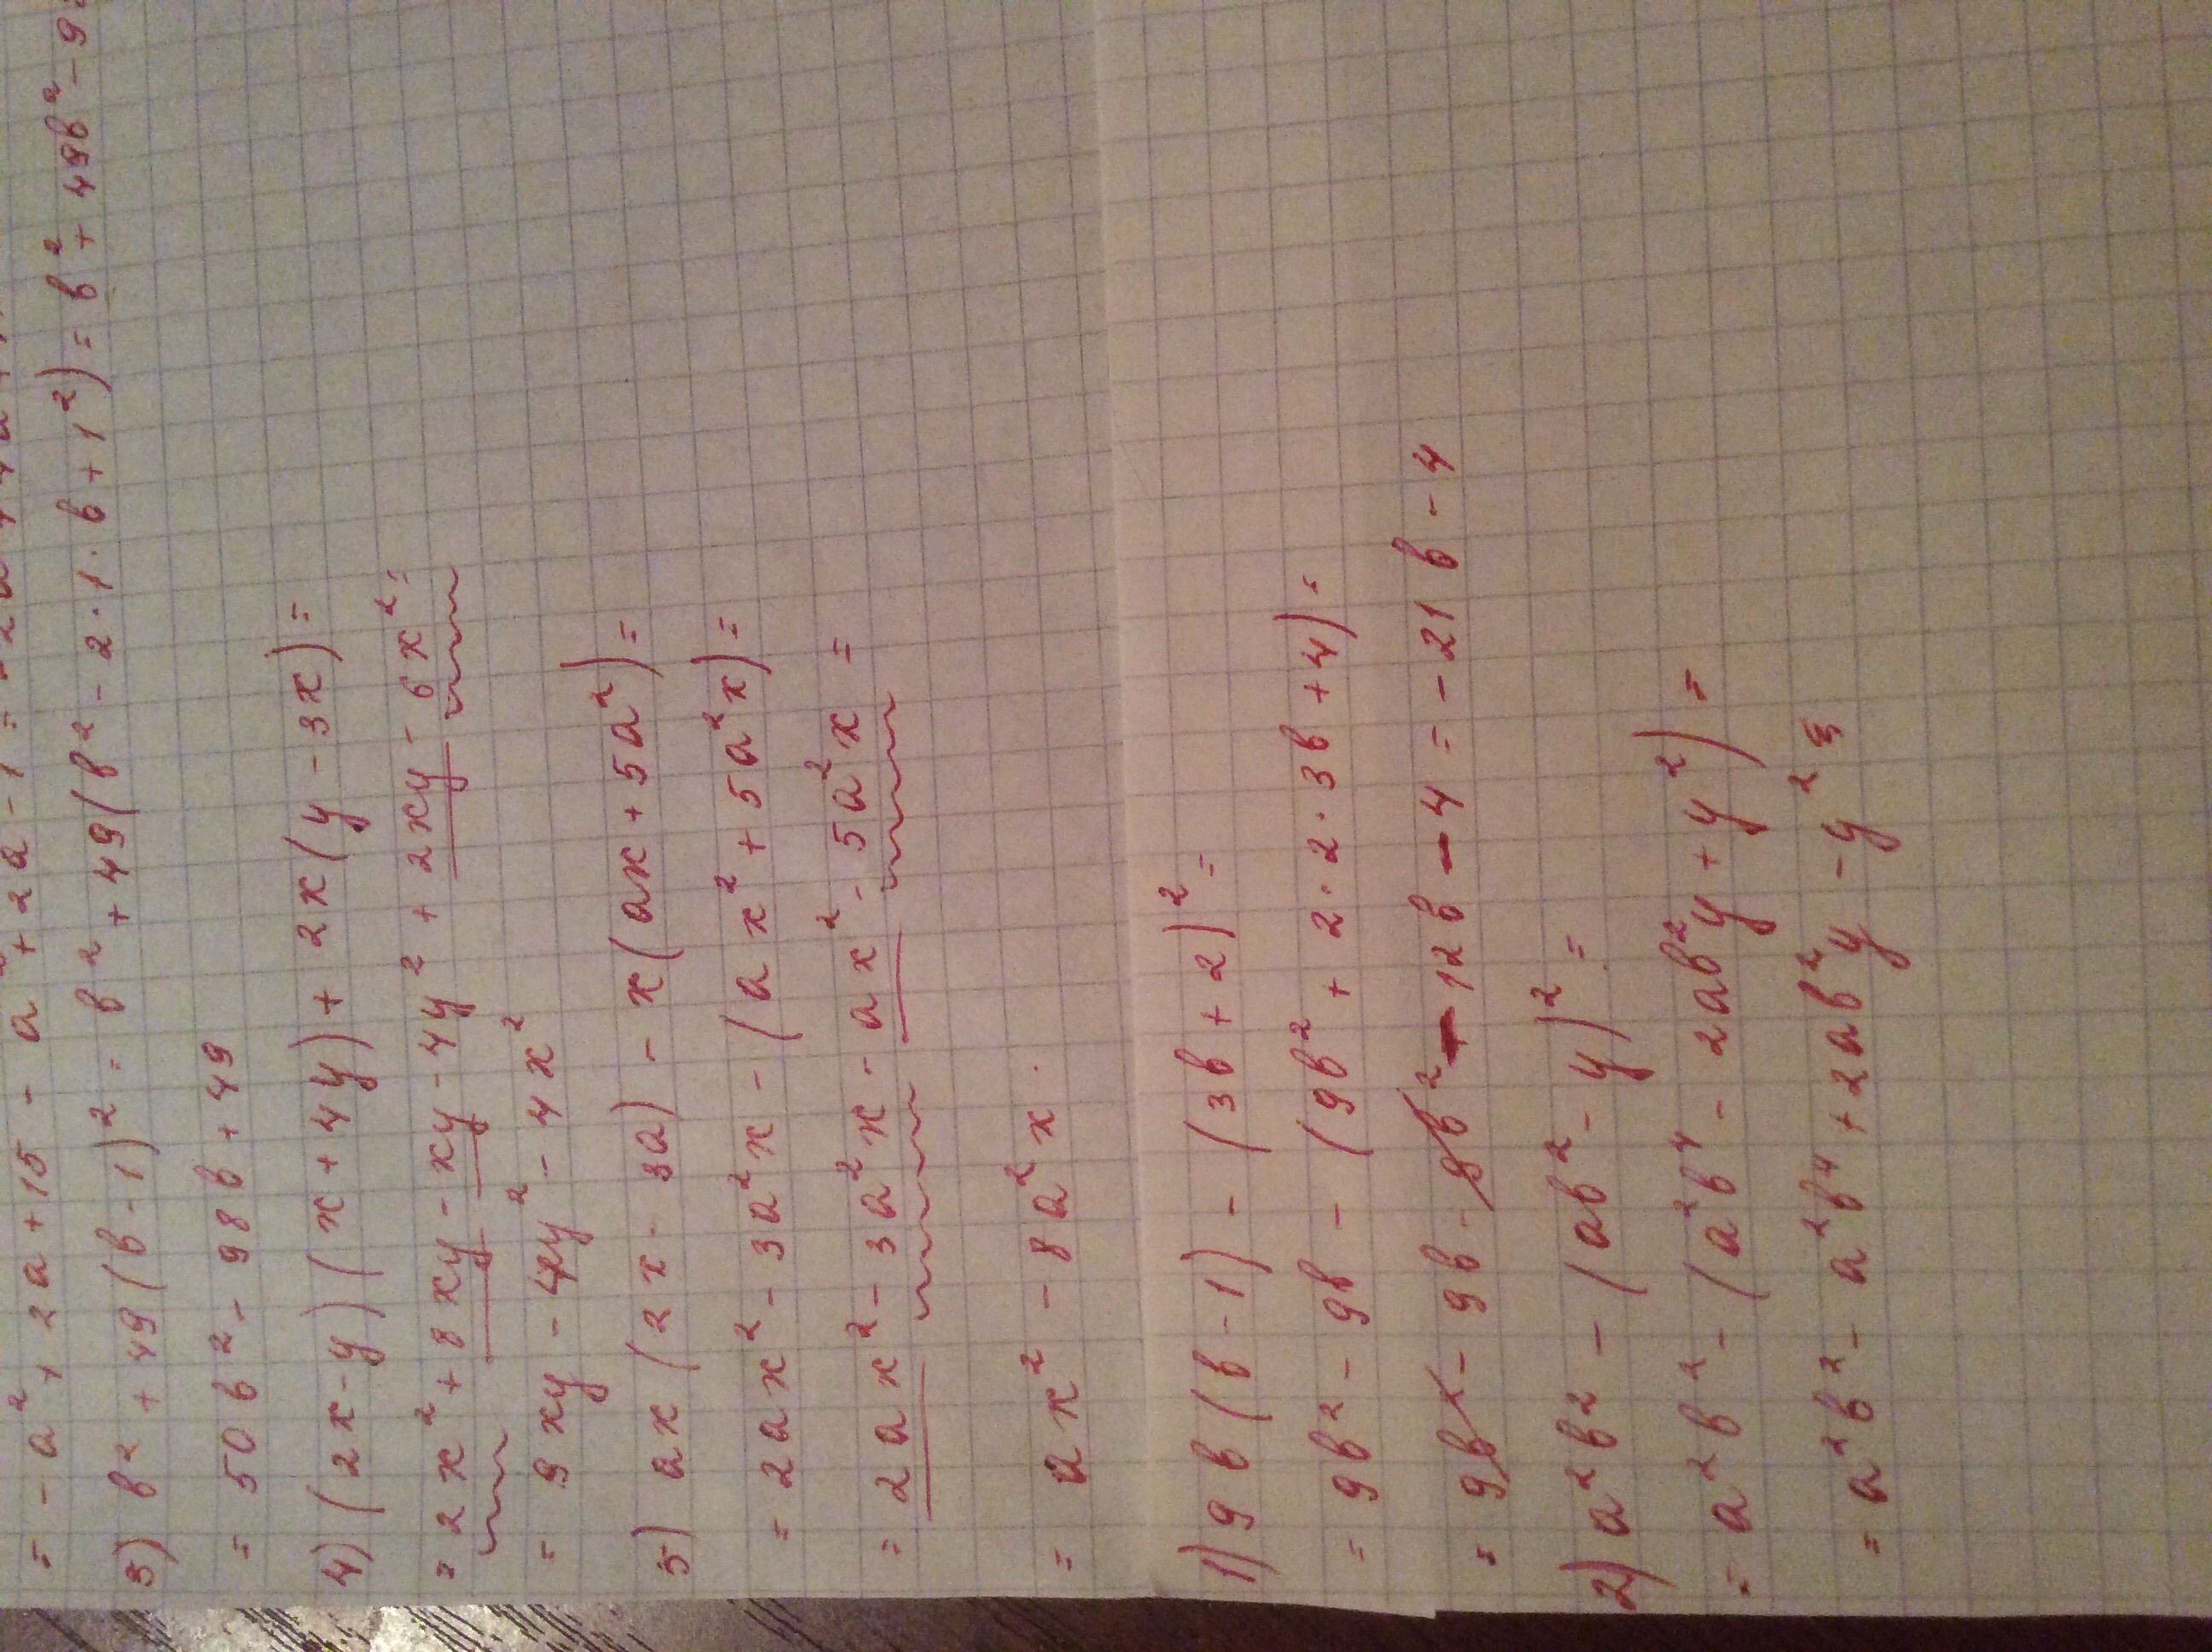 = - a² + 2a + 15 - a² + 2a - 1 =
3) в² + 49(в - 1)² = в² + 49(в² - 2 · 1 · в + 1²) = в² + 49в² - 9
= 50в² - 98в + 49
4) (2x - y)(x + 4y) + 2x(y - 3x) =
= 2x² + 8xy - xy - 4y² + 2xy - 6x² =
= 9xy - 4y² - 4x²
5) ax(2x - 3a) - x(ax + 5a²) =
= 2ax² - 3a²x - (ax² + 5a²x) =
= 2ax² - 3a²x - ax² - 5a²x =
= ax² - 8a²x.
1) 9в(в - 1) - (3в + 2)² =
= 9в² - 9в - (9в² + 2 · 2 · 3в + 4) =
= 9в² - 9в - 9в² - 12в - 4 = - 21в - 4
2) a²в² - (aв² - y)² =
= a²в² - (a²в⁴ - 2aв²y + y²) =
= a²в² - a²в⁴ + 2aв²y - y²